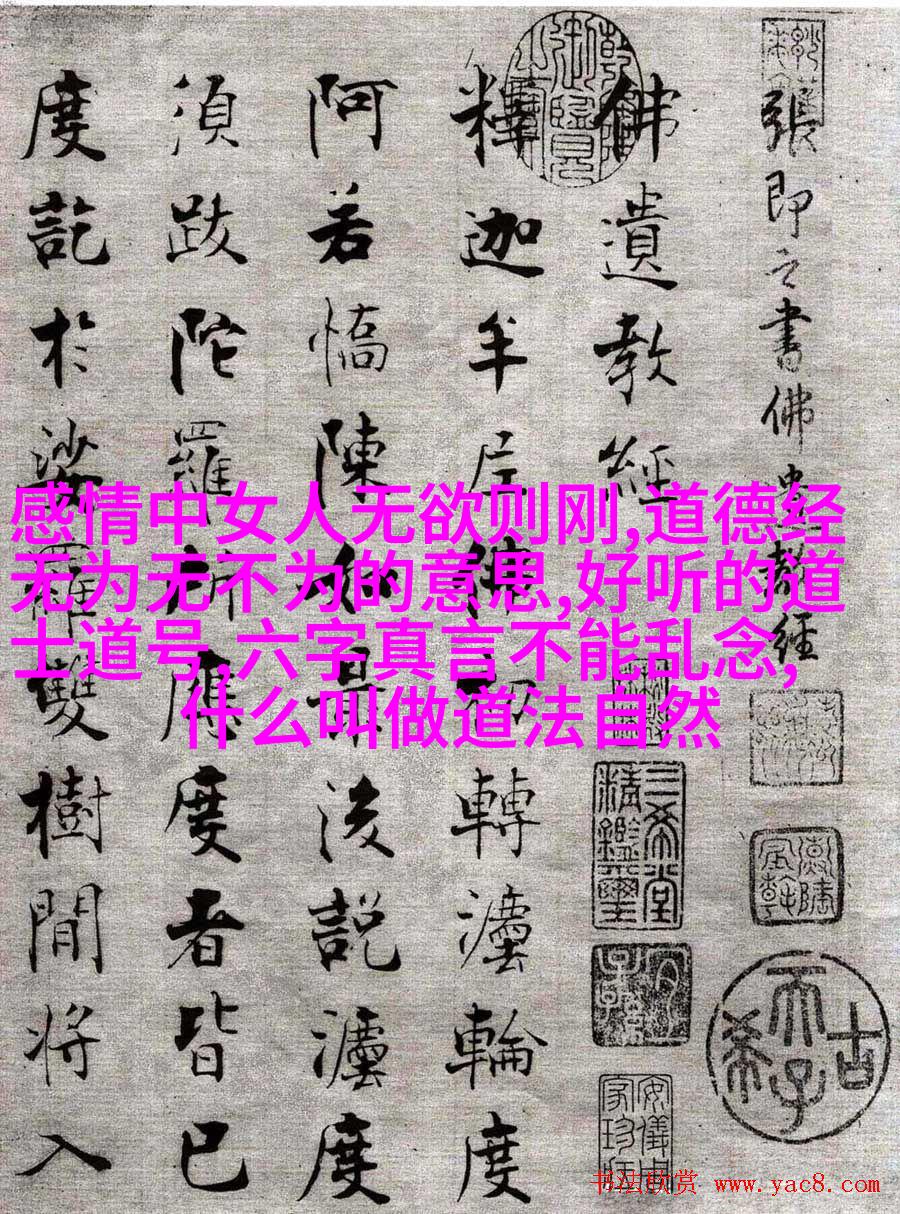 張即之書佛遺教經
佛遺教經
釋迦牟尼佛初轉灋輪度
阿若憍陳如最後說灋度
須跋陀羅所應度者皆已
度訖於娑羅雙樹間將入
感情中女人无欲则刚,道德经
无为无不为的意思,好听的道
士道号,六字真言不能乱念,
什么叫做道法自然
三希堂
精鑑璽
古希天子
安儀周
家珍藏
书法欣赏 www.yac8.com